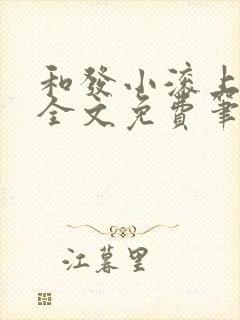 和發小滾上
全文免費筆
江暮里